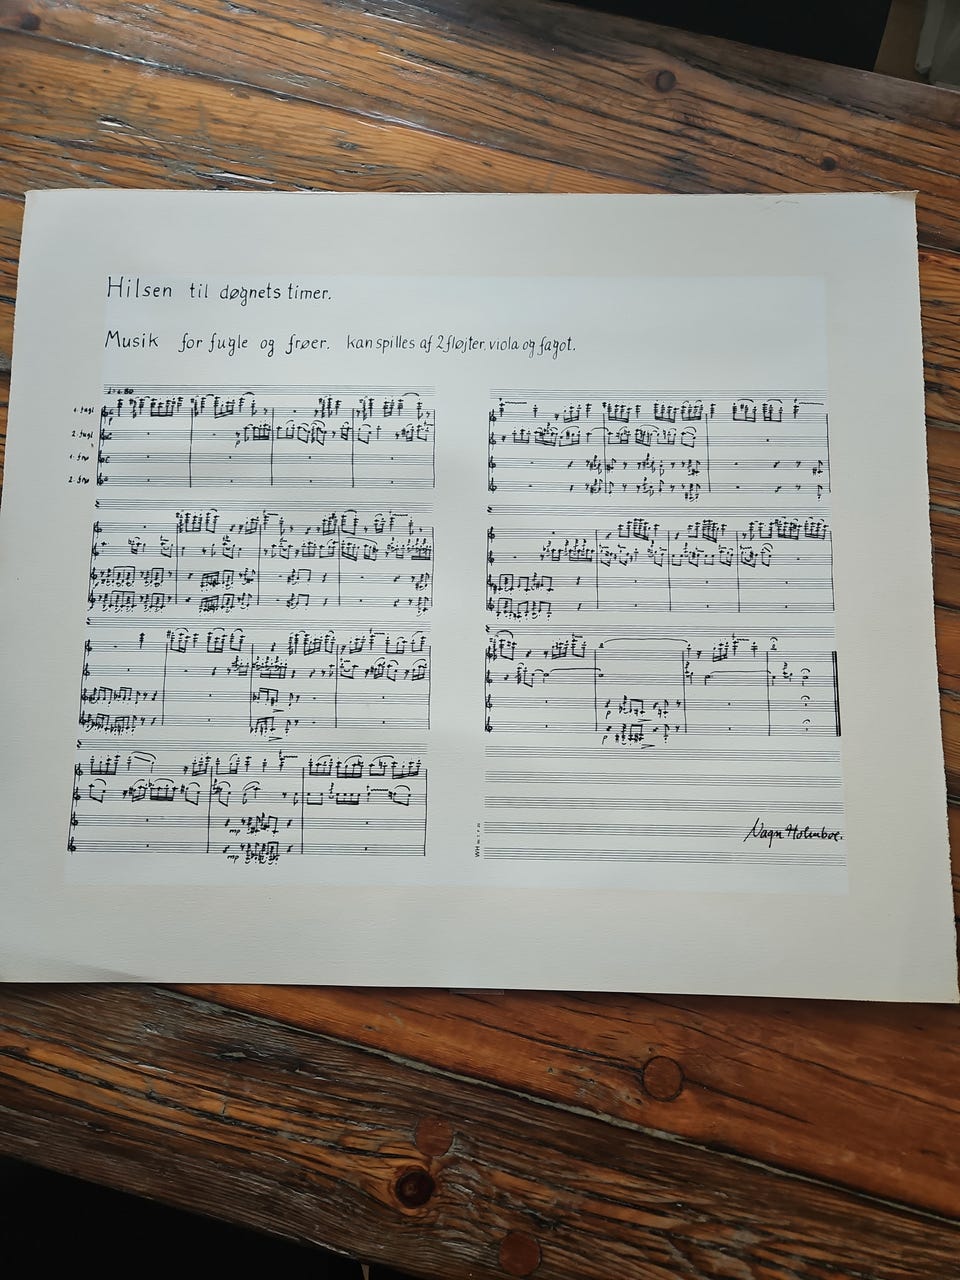 Hilsen til døgnets timer.
Musik for fugle og frøer. kan spilles af 2 fløjter, viola og fagot.
1. fugl
2. fugl
1. frø
2. frø
mp
mp
p
p
Vagn Holmboe.